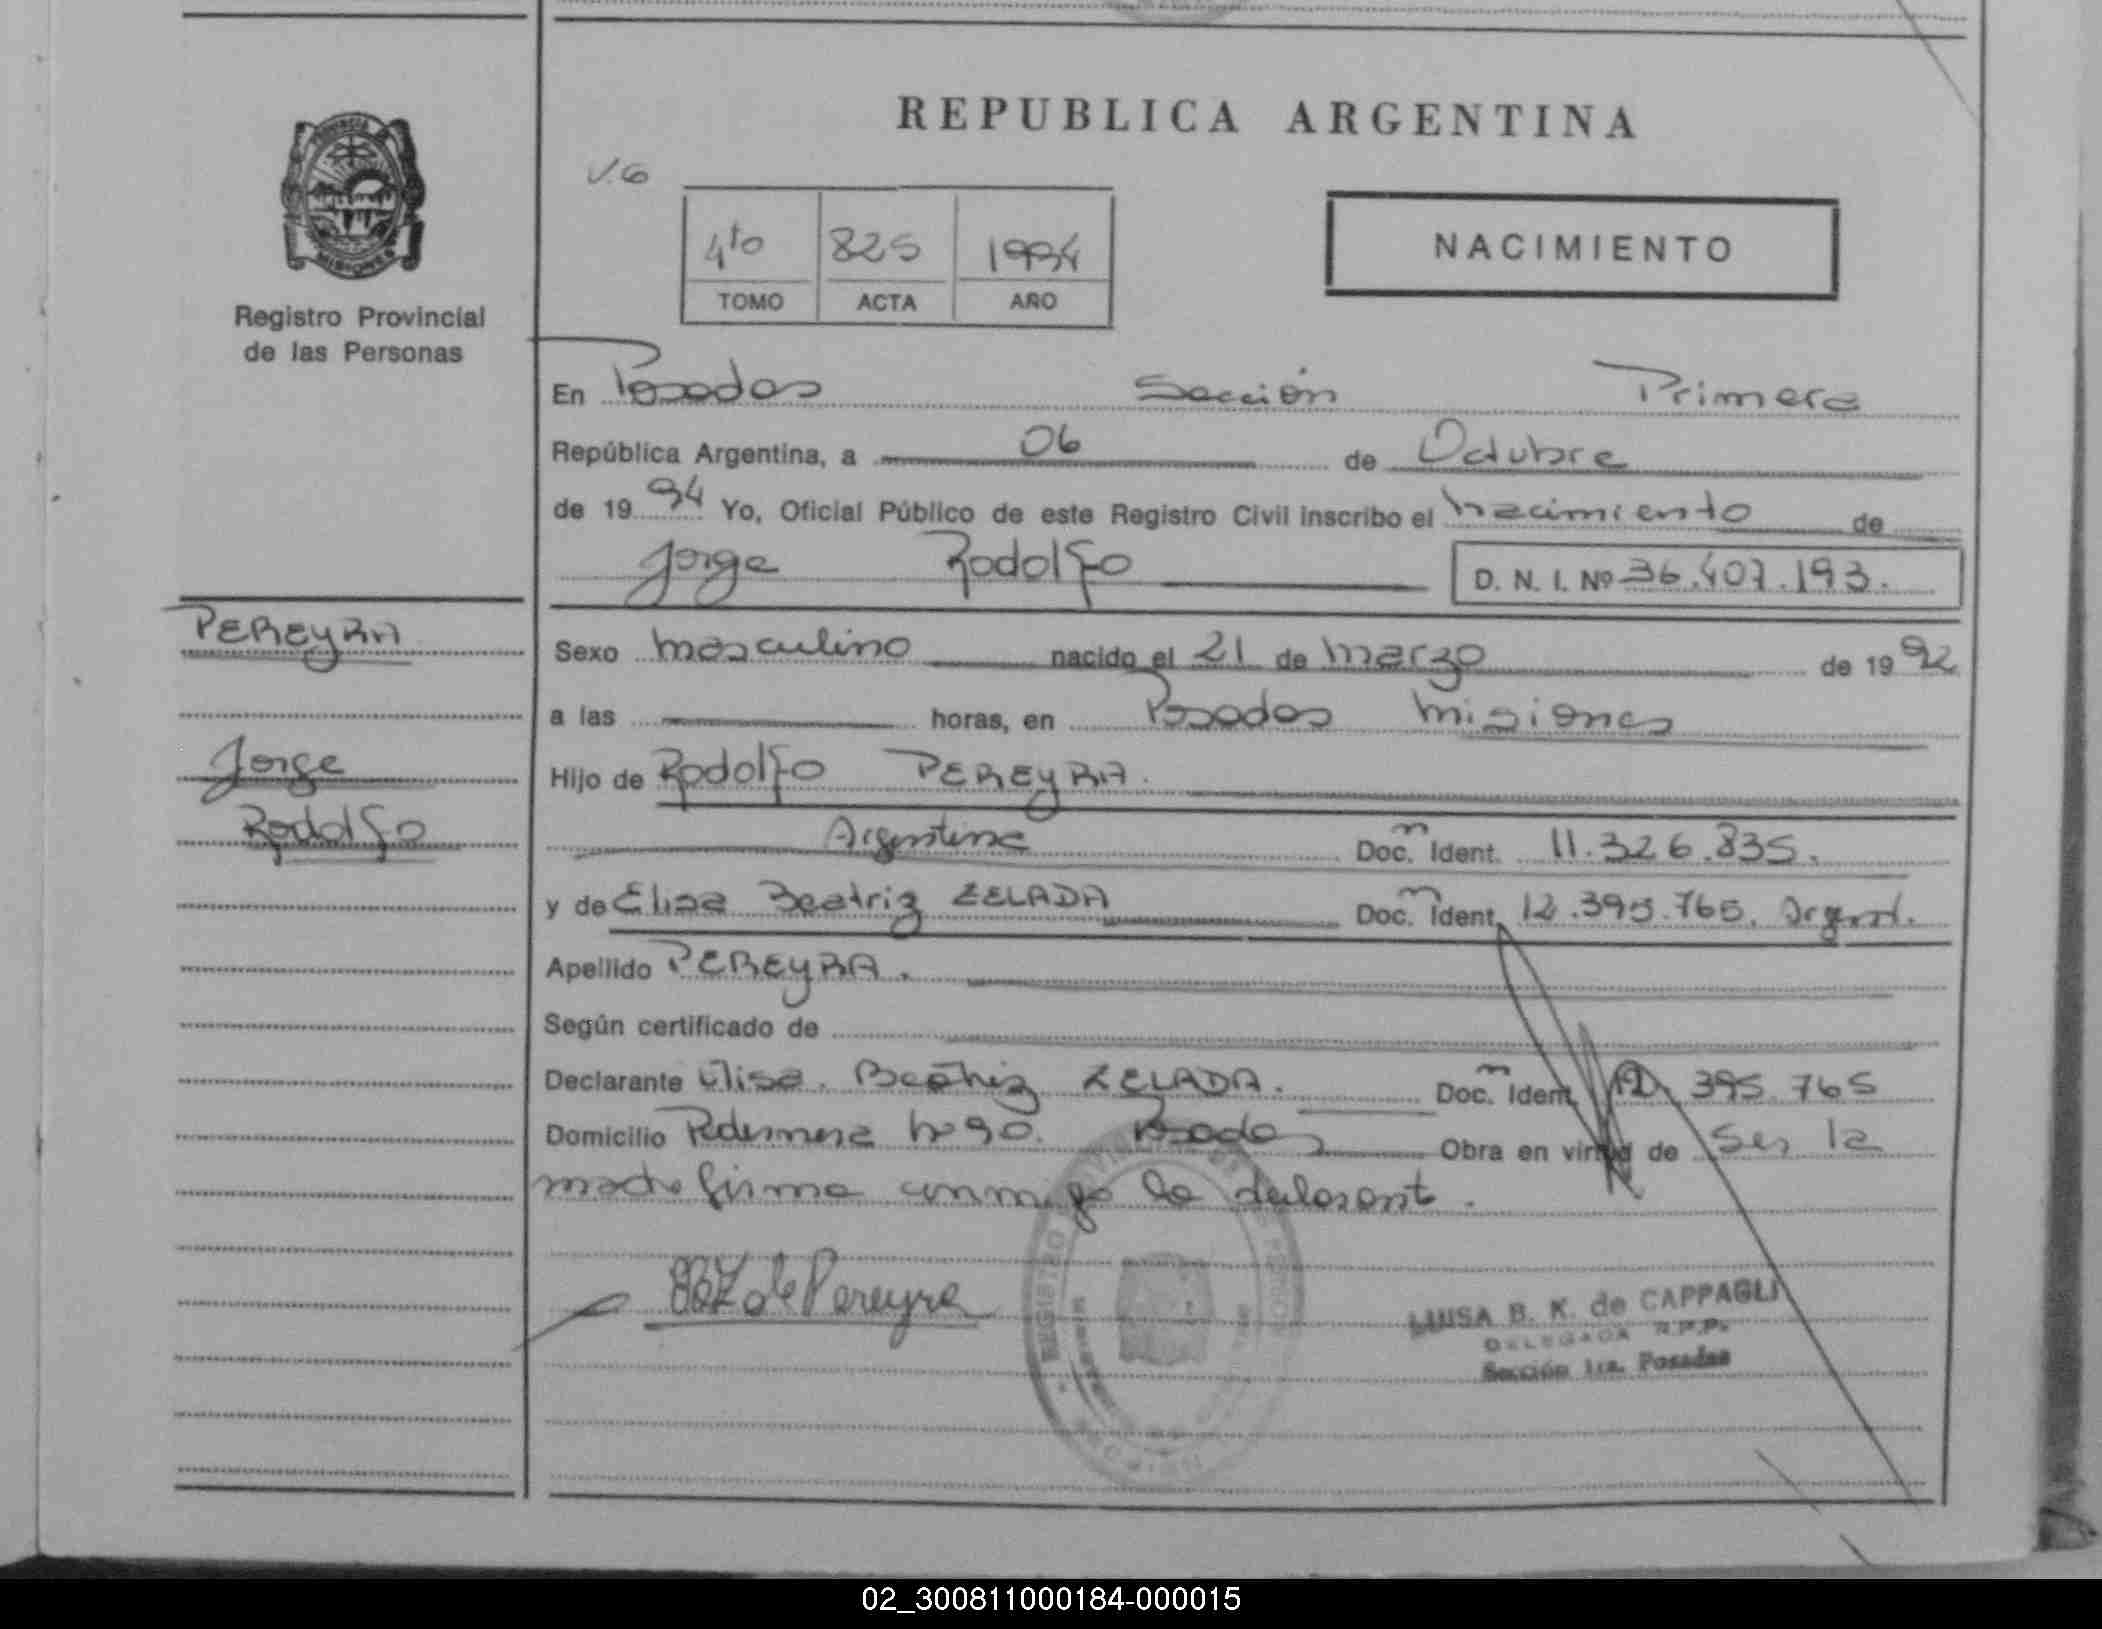 REPUBLICA ARGENTINA
V.6
4to 825 1994
TOMO ACTA AÑO
NACIMIENTO
PROVINCIA DE
MISIONES
Registro Provincial
de las Personas
En Posadas Sección Primera
República Argentina, a 06 de Octubre
de 19 94 Yo, Oficial Público de este Registro Civil inscribo el nacimiento de
Jorge Rodolfo D. N. I. Nº 36.407.193.
PEREYRA
Jorge
Rodolfo
Sexo masculino nacido el 21 de marzo de 19 92
a las horas, en Posadas Misiones
Hijo de Rodolfo PEREYRA.
Argentina Doc. Ident. m 11.326.835.
y de Elisa Beatriz ZELADA Doc. Ident. m 12.395.765. Argent.
Apellido PEREYRA.
Según certificado de
Declarante Elisa. Beatriz ZELADA. Doc. Ident. m 12. 395.765
Domicilio Pedernera nº 90. Posadas Obra en virtud de Ser la
madre firma conmigo la declarant.
EBZ de Pereyra
LUISA B. K. de CAPPAGLI
DELEGADA R.P.P.
Sección 1ra. Posadas
02_300811000184-000015